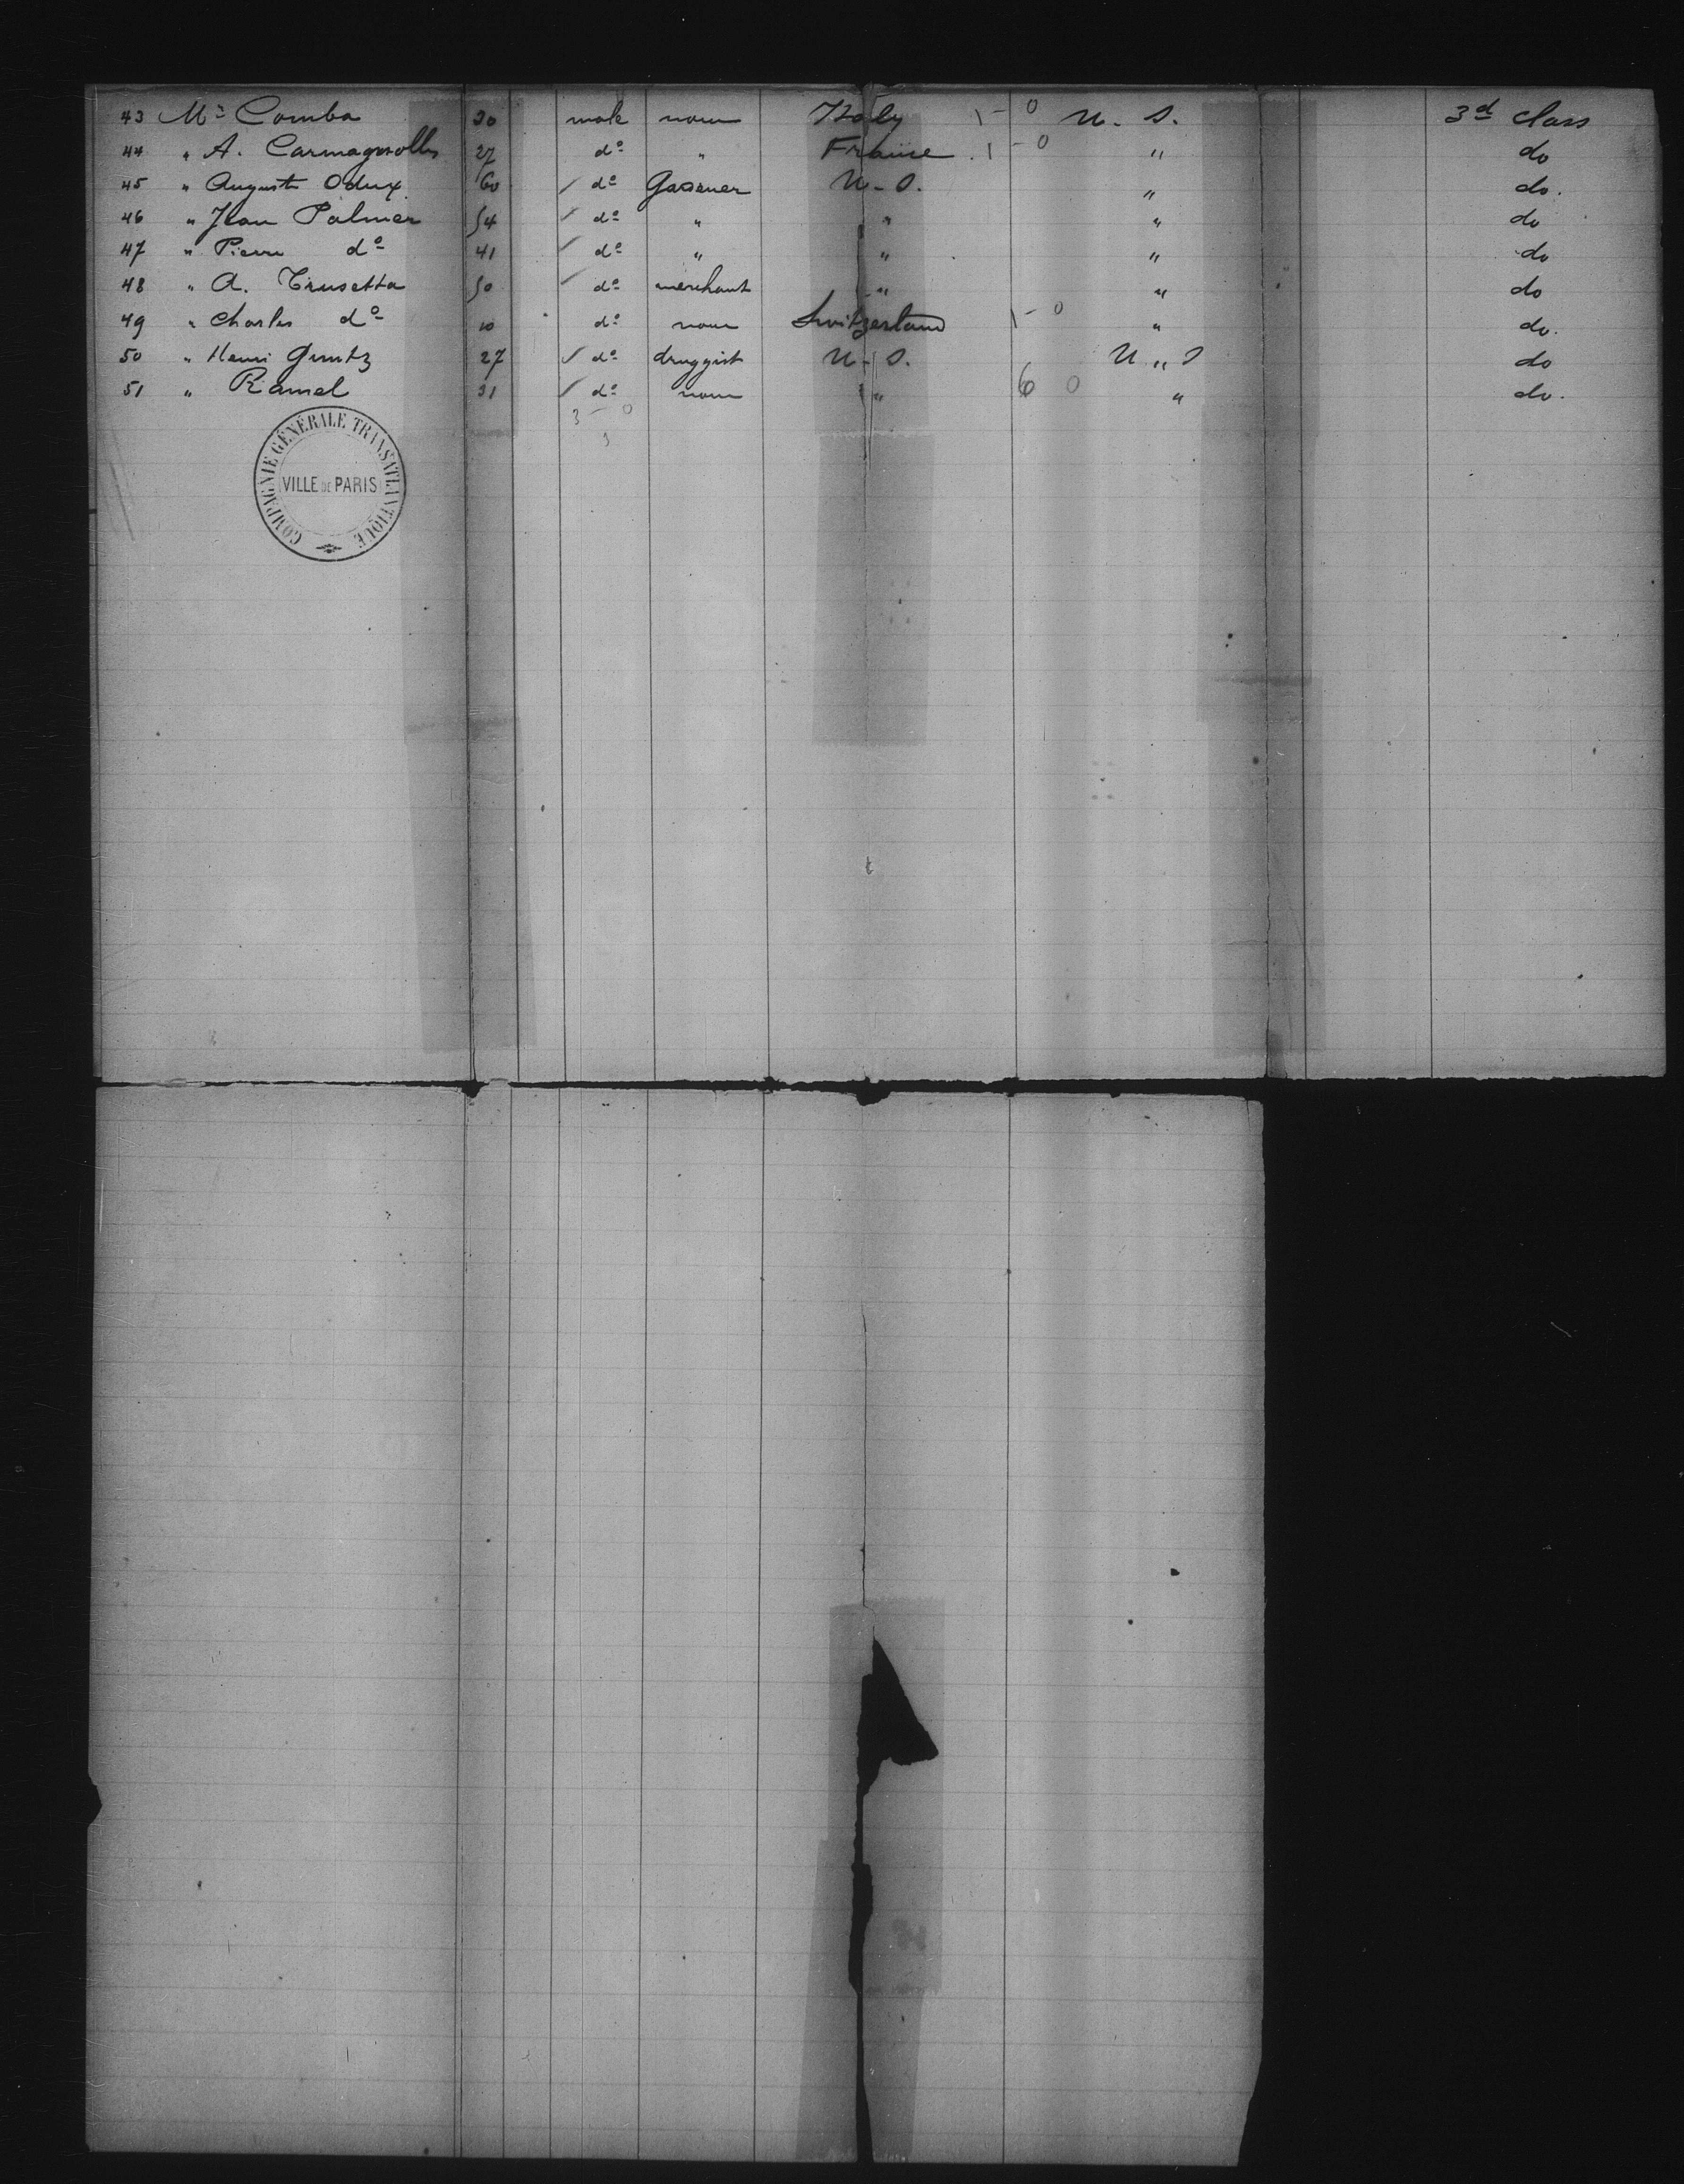 43 Mr Comba 30 male none Italy 1 - 0 U. S. 3d class
44 " A. Carmagnolle 27 do " France . 1 - 0 " do
45 " Auguste Odux 60 / do U. S. " do.
46 " Jean Palmer 54 / do " " " do
47 " Pierre do 41 / do " " " do
48 " A. Trusetta 50 / do merchant " " do
49 " Charles do 10 do none Switzerland 1 - 0 " do.
50 " Henri Guntz 27 / do druggist U. S. U " S do
51 " Ramel 31 / do none " 6 0 " do.
3 - 0
3
COMPAGNIE GÉNÉRALE TRANSATLANTIQUE
VILLE DE PARIS